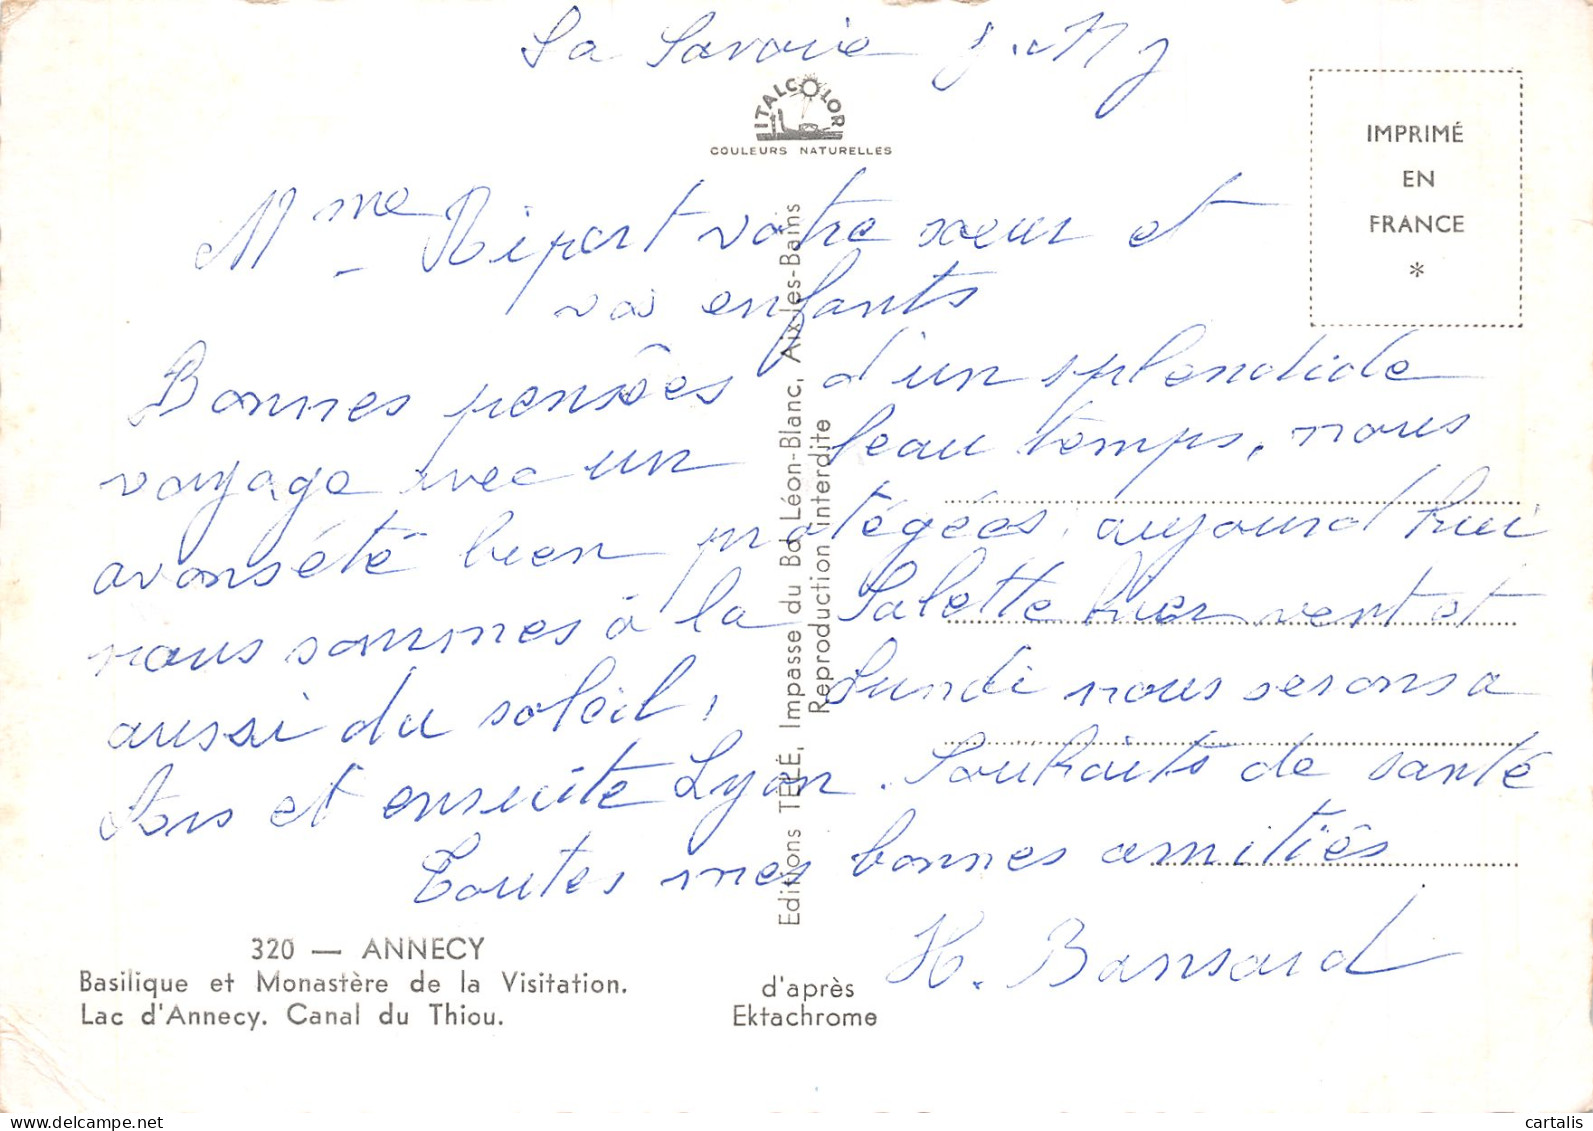 La Savoie
ITALCOLOR
COULEURS NATURELLES
IMPRIMÉ
EN
FRANCE
*
Mme Ripert votre sœur et
vos enfants
Bonnes pensées d'un splendide
voyage avec un beau temps, nous
avons été bien protégées, aujourd'hui
nous sommes à la Salette hier vent et
aussi du soleil, Lundi nous serons a
Ars et ensuite Lyon. Souhaits de santé
Toutes mes bonnes amitiés
H. Bansard
Editions TÉLÉ, Impasse du Bd Léon-Blanc, Aix-les-Bains
Reproduction interdite
320 — ANNECY
Basilique et Monastère de la Visitation.
Lac d'Annecy. Canal du Thiou.
d'après
Ektachrome
delcampe.net
cartalis